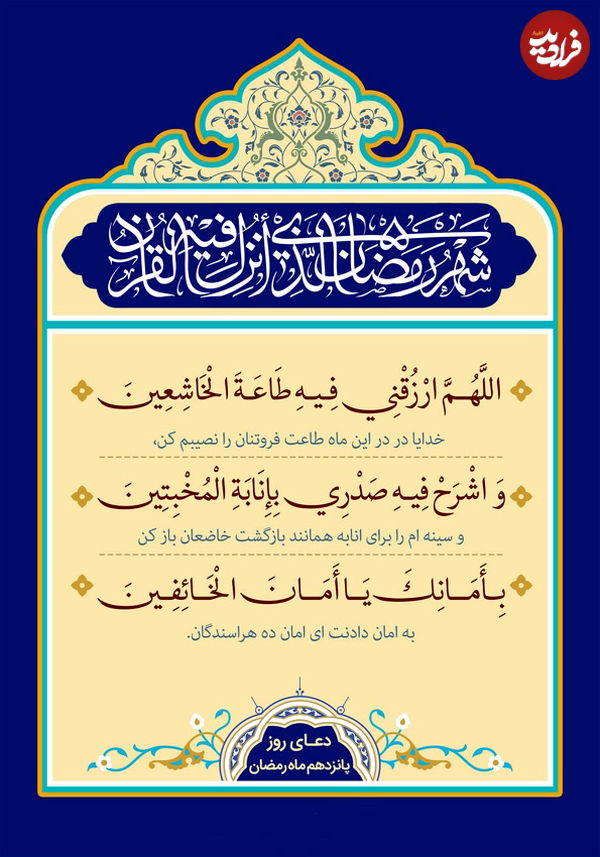 فرادید
اخبار
شَهْرُ رَمَضَانَ الَّذِي أُنْزِلَ فِيهِ الْقُرْآنُ
اللَّهُمَّ ارْزُقْنِي فِيهِ طَاعَةَ الْخَاشِعِينَ
خدایا در در این ماه طاعت فروتنان را نصیبم کن،
وَ اشْرَحْ فِيهِ صَدْرِي بِإِنَابَةِ الْمُخْبِتِينَ
و سینه ام را برای انابه همانند بازگشت خاضعان باز کن
بِأَمَانِكَ يَا أَمَانَ الْخَائِفِينَ
به امان دادنت ای امان ده هراسندگان.
دعـای روز
پانزدهم ماه رمضان